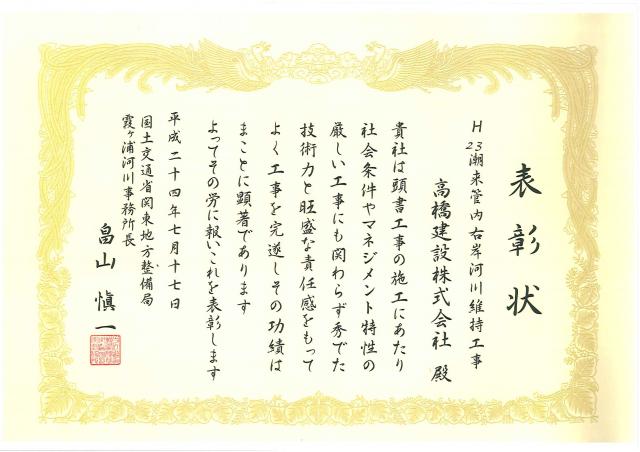 表彰状
H23潮来管内右岸河川維持工事
高橋建設株式会社 殿
貴社は頭書工事の施工にあたり
社会条件やマネジメント特性の
厳しい工事にも関わらず秀でた
技術力と旺盛な責任感をもって
よく工事を完遂しその功績は
まことに顕著であります
よってその労に報いこれを表彰します
平成二十四年七月十七日
国土交通省関東地方整備局
霞ヶ浦河川事務所長
畠山 愼一